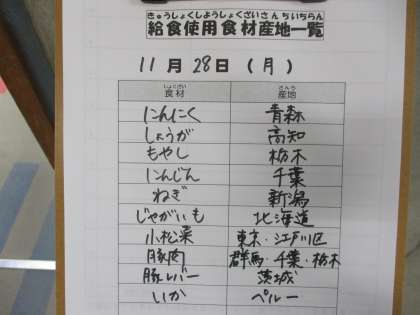 きゅうしょくしようしょくざいさんちいちらん
給食使用食材産地一覧
11月28日(月)
しょくざい さんち
食材 産地
にんにく 青森
しょうが 高知
もやし 栃木
にんじん 千葉
ねぎ 新潟
じゃがいも 北海道
小松菜 東京・江戸川区
豚肉 群馬・千葉・栃木
豚レバー 茨城
いか ペルー